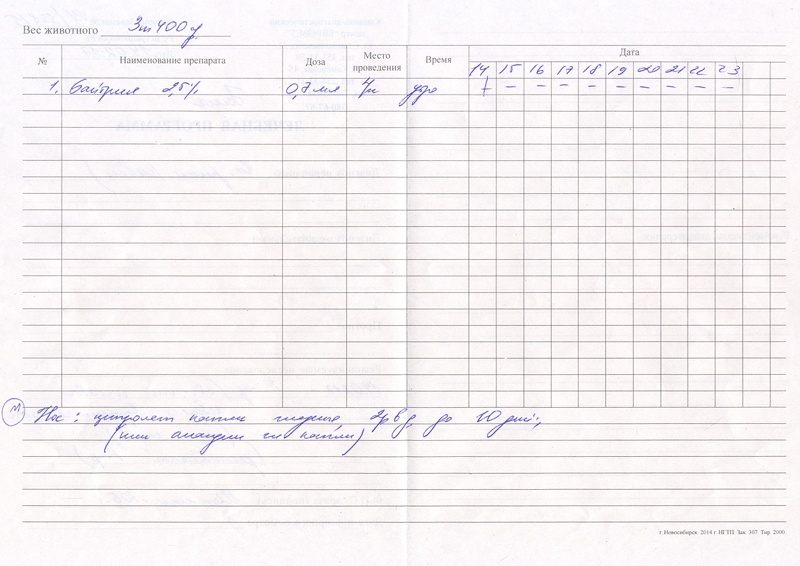 Вес животного 3 кг 400 г.
№ Наименование препарата Доза Место проведения Время Дата
14 15 16 17 18 19 20 21 22 23
1. Байтрил 2,5% 0,7 мл п/к утро + – – – – – – – – –
Нос: ципролет капли глазные, 2р в д, до 10 дней;
(или аналоги гл капли)
г. Новосибирск 2014 г. НГТП Зак. 307 Тир. 2000